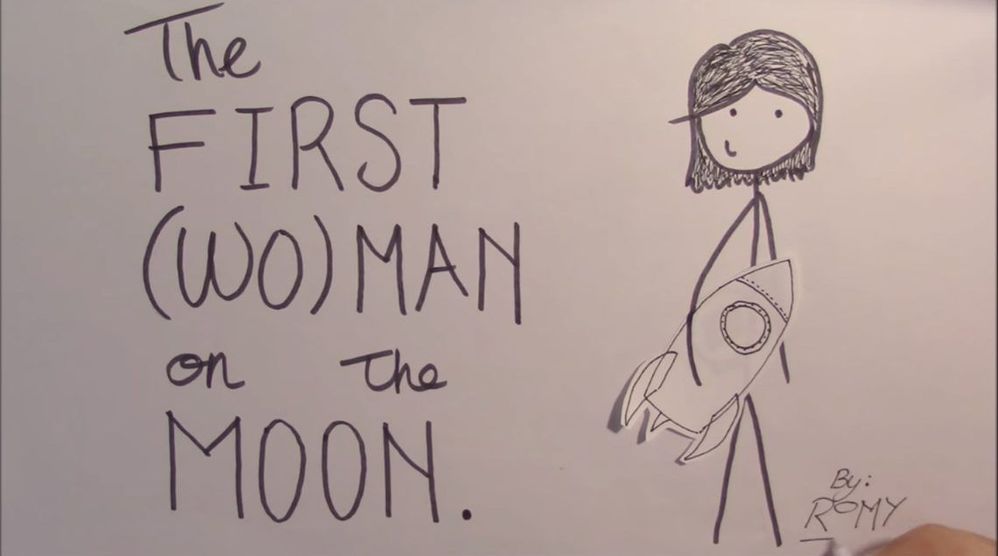 The
FIRST
(WO)MAN
on the
MOON.
By:
ROMY